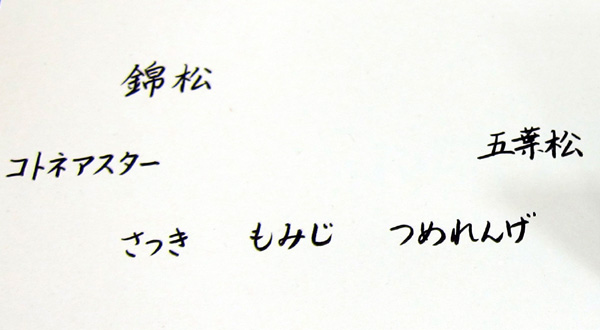 錦松
五葉松
コトネアスター
さつき もみじ つめれんげ